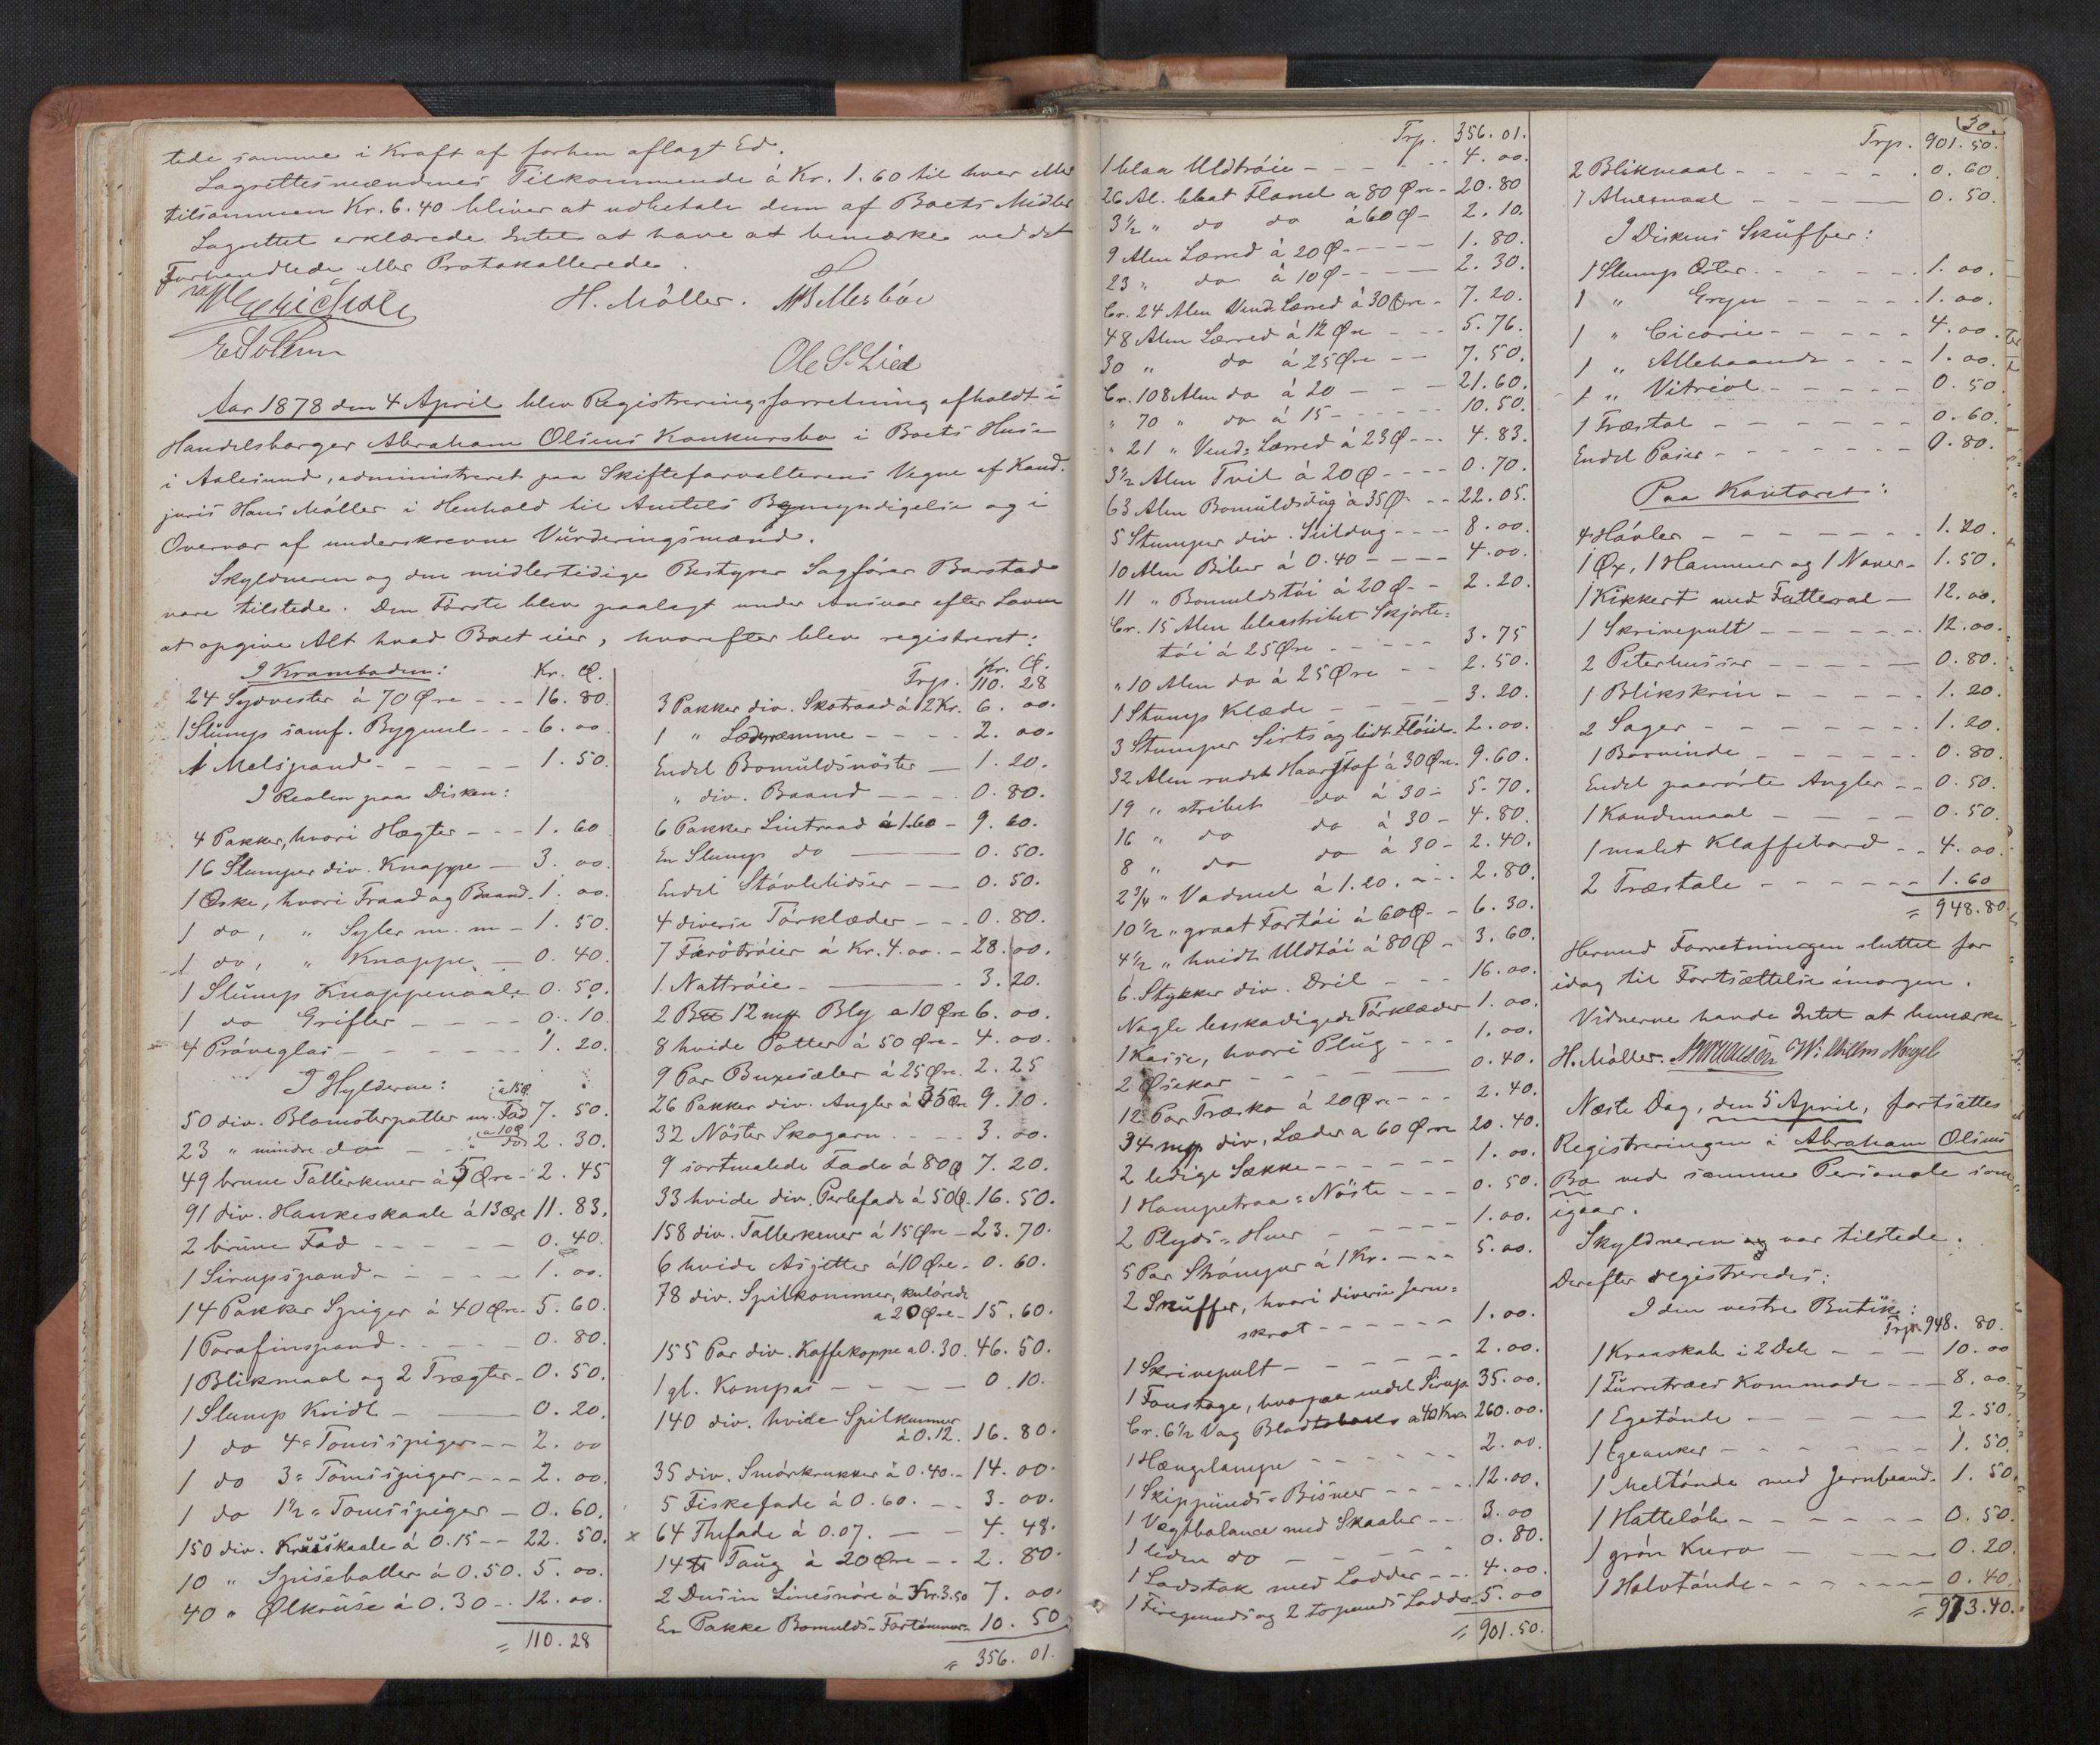 tede samme i Kraft af forhen aflagt Ed.
Lagrettesmændenes Tilkommende á Kr. 1.60 til hver eller
tilsammen Kr. 6.40 bliver at udbetale dem af Boets Midler
Lagrettet erklærede Intet at have at bemærke ved det
Forhandlede eller Protokollerede.
H. Møller.
Ole S. Lied
Aar 1878 den 4 April blev Registreringsforretning afholdt i
Handelsborger Abraham Olsens Konkursbo i Boets Huse
i Aalesund, administreret paa Skifteforvalterens Vegne af Kand.
juris Hans Møller i Henhold til Amtets Bemyndigelse og i
Overvær af underskrevne Vurderingsmænd.
Skyldneren og den midlertidige Bestyrer Sagfører Barstad
vare tilstede. Den Første blev paalagt under Ansvar efter Loven
at opgive Alt hvad Boet eier, hvorefter blev registreret:
I Kramboden: Kr. Ø.
24 Sydvester á 70 Øre - - - 16. 80.
1 Slump samf. Bygmel - - - 6. 00
1 Melspand - - - - - 1. 50.
I Reolen paa Disken:
4 Pakker, hvori Hægter - - - 1. 60
16 Slumper div. Knappe - 3. 00
1 Æske, hvori Traad og Baand - 1. 00
1 do, " Syler m. m - 1. 50.
1 do, " Knappe - 0. 40.
1 Slump Knappenaale 0. 50.
1 do Grifler - - - - 0. 10
4 Prøveglas - - - - - 1. 20.
I Hylderne:
50 div. Blomsterpotter m. Fad a 15 Ø 7. 50.
23 " mindre do - " do a 10 Ø 2. 30.
49 brune Tallerkener á 5 Øre - 2. 45
91 div. Hankeskaale á 13 Øre 11. 83.
2 brune Fad - - - - - 0. 40.
1 Sirupspand - - - - - 1. 00.
14 Pakker Spiger á 40 Øre 5. 60.
1 Parafinspand - - - - 0. 80.
1 Blikmaal og 2 Trægter - 0. 50.
1 Slump Kridt - - 0. 20.
1 do 4" Tomsspiger - - 2. 00
1 do 3" Tomsspiger - - - 2. 00.
1 do 1½" Tomsspiger - 0. 60.
150 div. Krusskaale á 0.15 - - 22. 50.
10 " Spiseboller á 0.50. 5. 00.
40 " Ølkruse á 0.30 - 12. 00.
= 110. 28
Kr. Ø.
Trp. 110. 28
3 Pakker div. Skotraad á 2 Kr. 6. 00.
1 " Læderremme - - - - 2. 00.
Endel Bomuldsnøster - 1. 20.
" div. Baand - - - - 0. 80.
6 Pakker Lintraad á 1.60 - 9. 60.
En Slump do - 0. 50.
Endel Støvlelidser - - 0. 50.
4 diverse Tørklæder - - - 0. 80.
7 Færøtrøier á Kr. 4.00. - 28. 00.
1 Nattrøie - - 3. 20.
2 B 12 mrk Bly a 10 Øre 6. 00.
8 hvide Potter á 50 Øre - 4. 00.
9 Par Buxesæler á 25 Øre. 2. 25
26 Pakker div. Angler á 35 Øre 9. 10.
32 Nøster Skogarn - - - - 3. 00.
9 sortmalede Fade á 80 Ø 7. 20.
33 hvide div. Perlefade á 50 Ø. 16. 50.
158 div. Tallerkener á 15 Øre - 23. 70.
6 hvide Asjetter á 10 Øre - 0. 60.
78 div. Spilkommer, kulørede
a 20 Øre - 15. 60.
155 Par div. Kaffekoppe a 0.30. 46. 50.
1 gl. Kompas - - - - 0. 10.
140 div. hvide Spilkummer
á 0.12. 16. 80.
35 div. Smørkrukker á 0.40. - 14. 00.
5 Fiskefade á 0.60. - - 3. 00.
x 64 Thefade á 0.07. - - 4. 48.
14 Taug á 20 Øre - - 2. 80.
2 Dusin Linesnøre á Kr. 3.50 7. 00.
En Pakke Bomulds-Fortømmer - 10. 50
= 356. 01.
Trp. 356. 01.
1 blaa Uldtrøie - - - - - 4. 00.
26 Al. blaat Flanel a 80 Øre - 20. 80
3½ " do do á 60 Ø - 2. 10.
9 Alen Lærred á 20 Ø - - - - 1. 80.
23 " do á 10 Ø - - - - 2. 30.
Cr. 24 Alen Vend: Lærred á 30 Øre - 7. 20.
48 Alen Lærred á 12 Øre - - - 5. 76.
30 " do á 25 Øre - - 7. 50.
Cr. 108 Alen do á 20 - - - 21. 60.
" 70 " do á 15 - - - - - 10. 50.
" 21 " Vend: Lærred á 23 Ø - - - 4. 83.
3½ Alen Tvil á 20 Ø - - - - 0. 70.
63 Alen Bomuldsdug á 35 Ø - - 22. 05.
5 Stumper div. Seildug - - - 8. 00.
10 Alen Biber á 0.40 - - - - 4. 00.
11 " Bomuldstøi á 20 Ø - - 2. 20.
Cr. 15 Alen blaastribet Skjorte=
tøi á 25 Øre - - - - - 3. 75
" 10 Alen do á 25 Øre - - 2. 50.
1 Stump Klæde - - - - 3. 20.
3 Stumper Sirts og lidt Fløiel - 2. 00.
32 Alen rudet Haarstof á 30 Øre. 9. 60.
19 " stribet do á 30 - 5. 70.
16 " do do á 30 - 4. 80.
8 " do do á 30 - 2. 40.
2¾ " Vadmel á 1.20. - - 2. 80.
10½ " graat Fortøi á 60 Ø - - 6. 30.
4½ " hvidt Uldtøi á 80 Ø - 3. 60.
6 Stykker div. Dril - - - 16. 00.
Nogle beskadigede Tørklæder 1. 00.
1 Kasse, hvori Plug - - - 1. 00.
2 Øsekar - - - - - 0. 40.
12 Par Træsko á 20 Øre - - - 2. 40.
34 mrk div. Læder a 60 Øre 20. 40.
2 ledige Sække - - - - - 1. 00.
1 Hampetraa=Nøste - - - 0. 50.
2 Plyds=Huer - - - - - 1. 00.
5 Par Strømper á 1 Kr. - - - 5. 00.
2 Skuffer, hvori diverse Jern=
skrot - - - - - - 1. 00.
1 Skrivepult - - - - - - 2. 00.
1 Foustage, hvorpaa endel Sirup 35. 00.
Cr. 6½ Vog Bladtobak a 40 Kr. 260. 00.
1 Hængelampe - - - - - 2. 00.
1 Skippunds=Bismer - - - - 12. 00.
1 Vægtbalance med Skaaler - - 3. 00
1 liden do - - - - - 0. 80.
1 Lodstok med Lodder - - - 4. 00.
1 Firepunds og 2 topunds Lodder - 5. 00
= 901. 50.
30.
Trp. 901. 50.
2 Blikmaal - - - - - - 0. 60.
1 Alnemaal - - - 0. 50.
I Diskens Skuffer:
1 Slump Erter - - - - - 1. 00.
1 " Gryn - - - - - 1. 00.
1 " Cicorie - - - - - 4. 00.
1 " Allehaande - - - 1. 00.
1 " Vitriol - - - - - 0. 50.
1 Træstol - - - - - - 0. 60.
Endel Poser - - - - - - 0. 80.
Paa Kontoret:
4 Høvler - - - - - - - 1. 20.
1 Øx, 1 Hammer og 1 Naver - 1. 50.
1 Kikkert med Futteral - 12. 00.
1 Skrivepult - - - - - - 12. 00.
2 Peterhusser - - - - - 0. 80.
1 Blikskrin - - - - - 1. 20.
2 Sager - - - - - - 1. 20.
1 Borvinde - - - - - - 0. 80.
Endel paarørte Angler - - 0. 50.
1 Kandemaal - - - - 0. 50.
1 malet Klaffebord - - 4. 00.
2 Træstole - - - - - - 1. 60
= 948. 80.
Hermed Forretningen sluttet for
idag til Fortsættelse imorgen.
Vidnerne havde Intet at bemærke.
H. Møller. Wilhelm Nagel
Næste Dag, den 5 April, fortsattes
Registreringen i Abraham Olsens
Bo ved samme Personale som
igaar.
Skyldneren var tilstede.
Derefter registreredes:
I den vestre Butik:
Trp. 948. 80.
1 Kraaskab i 2 Dele - - - 10. 00
1 Furretræes Kommode - - 8. 00.
1 Egetønde - - - - - 2. 50.
1 Egeanker - - - - - - 1. 50.
1 Meltønde med Jernbaand - 1. 50.
1 Hatteløb - - - - - - 0. 50.
1 grøn Kurv - - - 0. 20.
1 Halvtønde - - - - - - 0. 40.
= 973. 40.